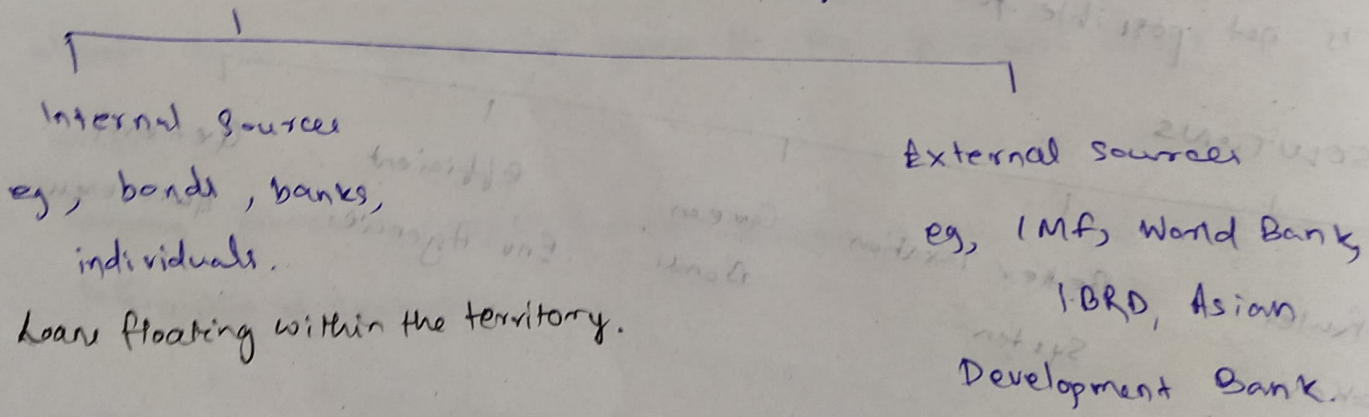 Internal Sources
eg, bonds, banks,
individuals.
Loans floating within the territory.
External Sources
eg, IMF, World Bank,
IBRD, Asian
Development Bank.